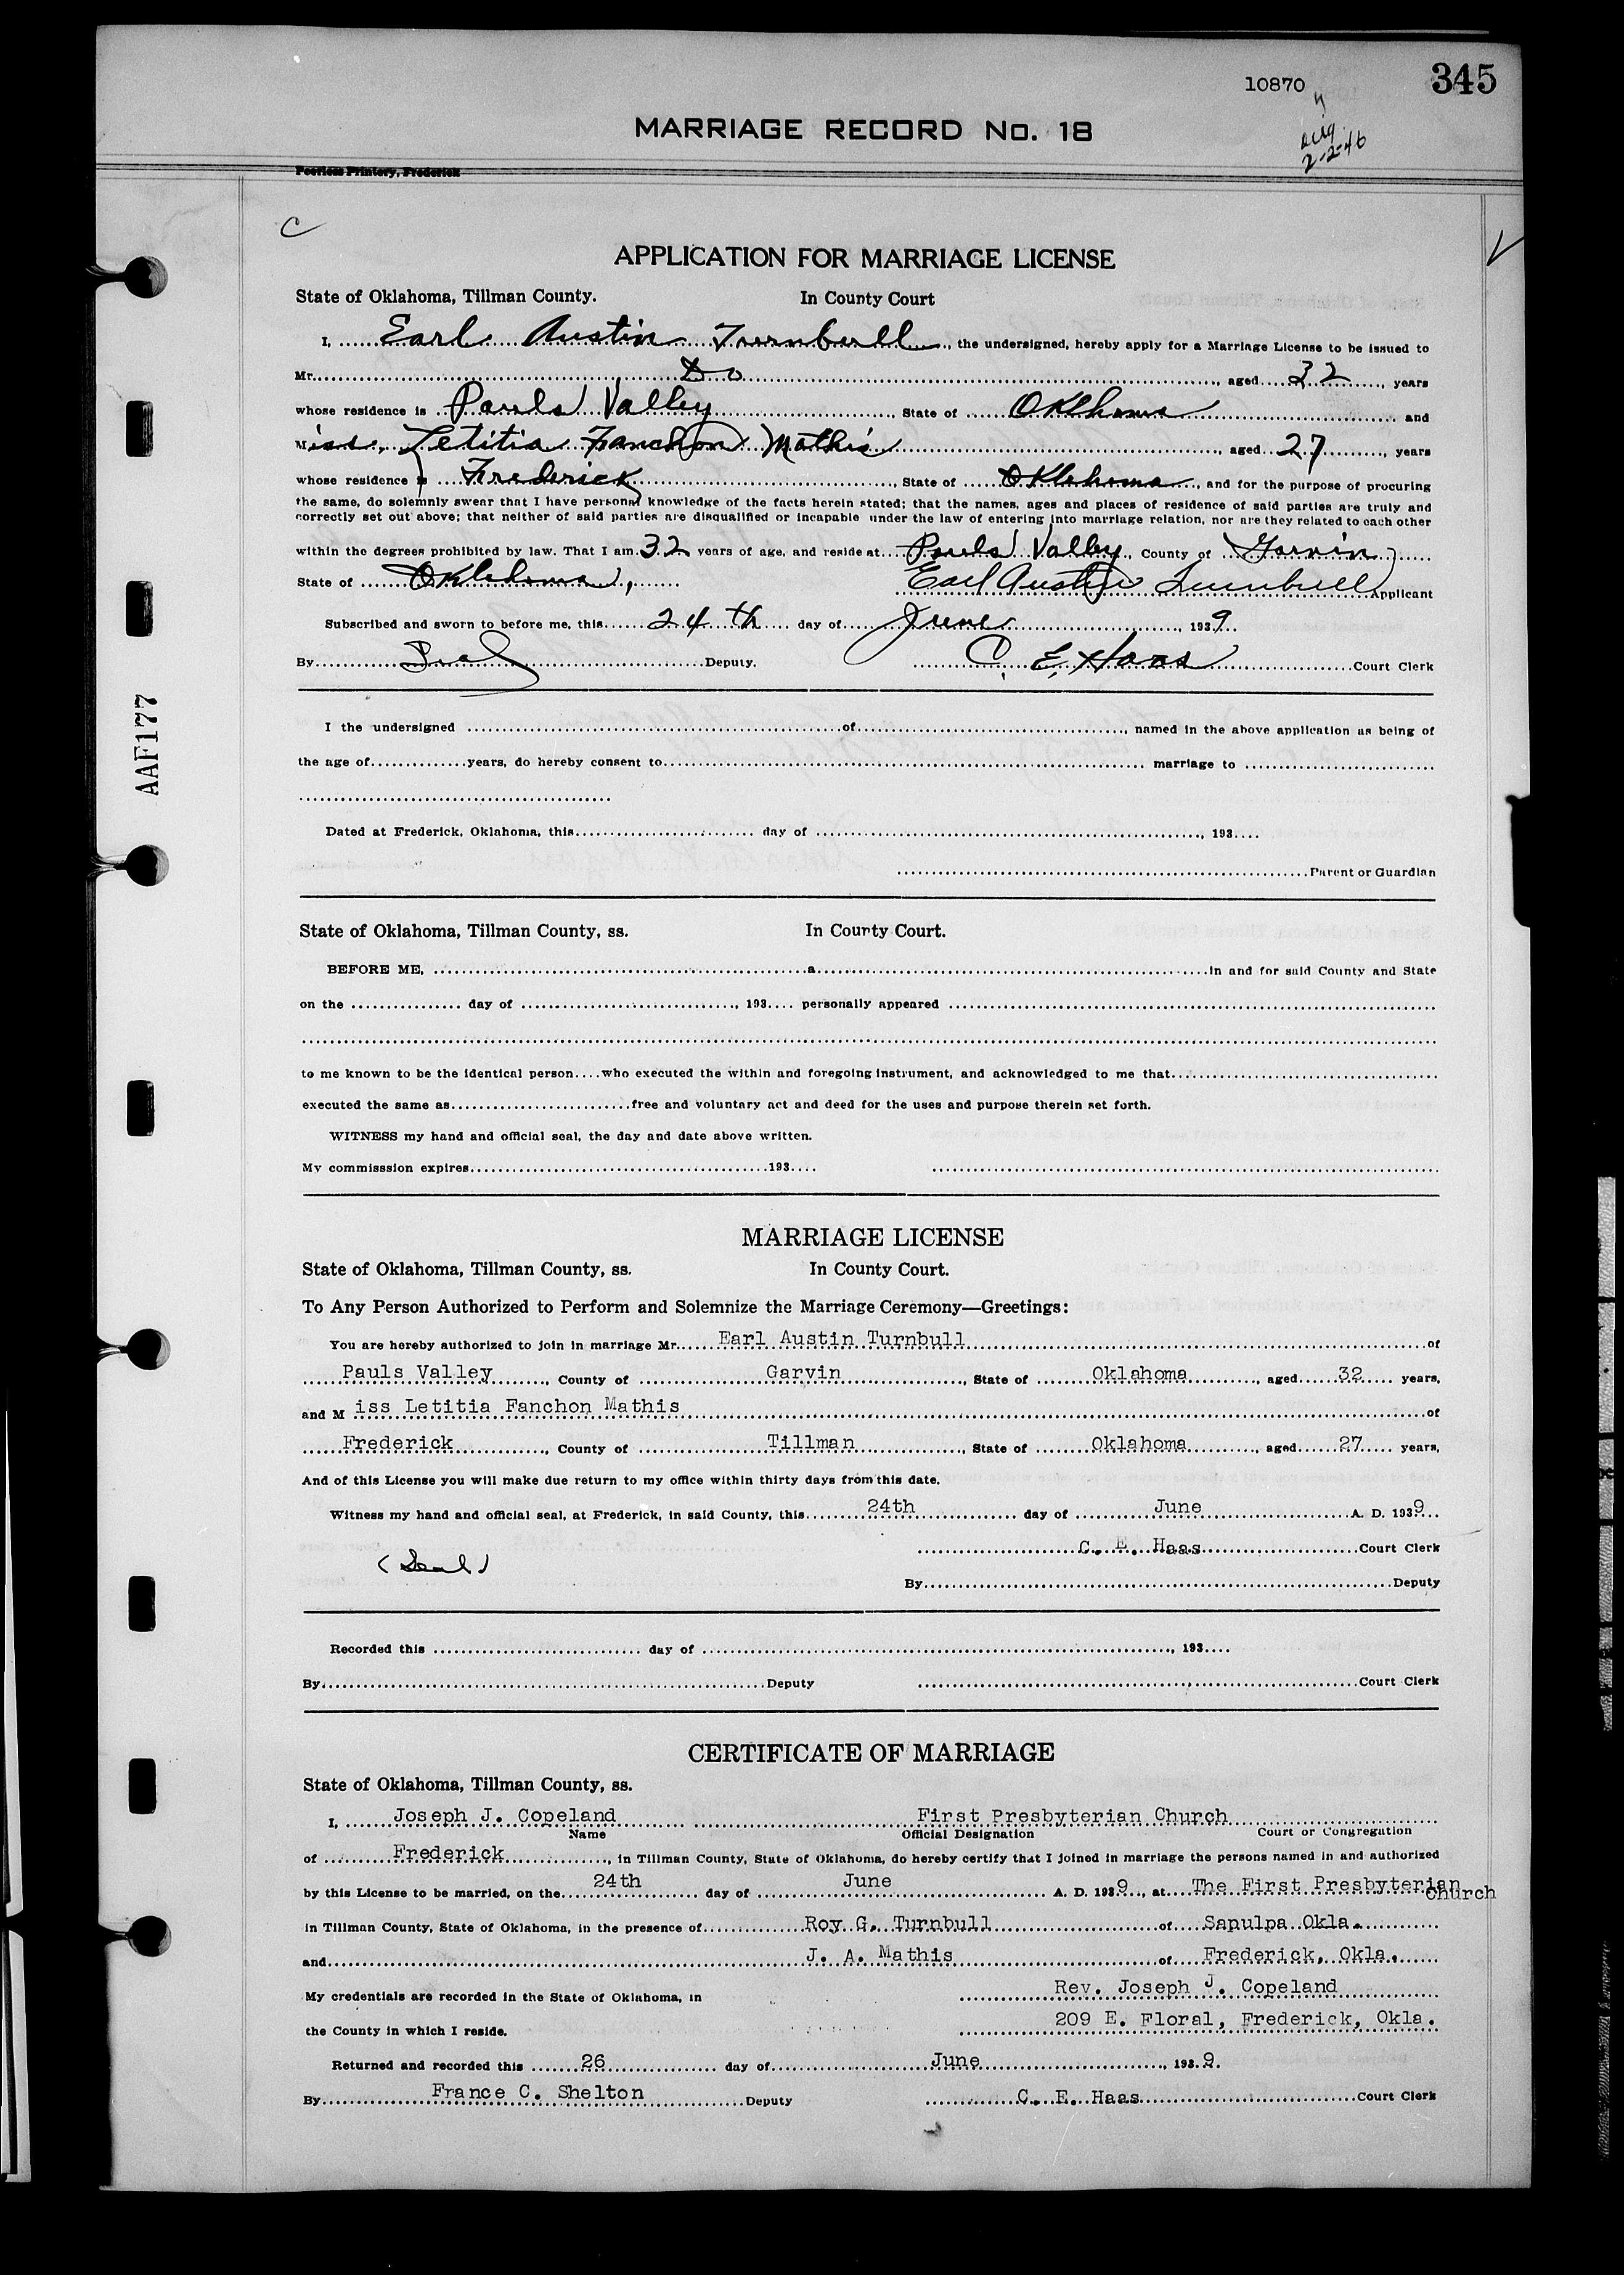 10870
345
MARRIAGE RECORD No. 18
2-2-46
Peerless Printery, Frederick
C
APPLICATION FOR MARRIAGE LICENSE
State of Oklahoma, Tillman County. In County Court
I, Earl Austin Turnbull, the undersigned, hereby apply for a Marriage License to be issued to
Mr. Do, aged 32, years
whose residence is Pauls Valley, State of Oklhoma and
Miss. Letitia Fanchon Mathis, aged 27, years
whose residence is Frederick, State of Oklahoma, and for the purpose of procuring
the same, do solemnly swear that I have personal knowledge of the facts herein stated; that the names, ages and places of residence of said parties are truly and
correctly set out above; that neither of said parties are disqualified or incapable under the law of entering into marriage relation, nor are they related to each other
within the degrees prohibited by law. That I am 32 years of age, and reside at Pauls Valley, County of Garvin,
State of Oklahoma, Earl Austin Turnbull Applicant
Subscribed and sworn to before me, this 24th day of June, 1939
By Seal Deputy. C. E. Haas Court Clerk
I the undersigned of, named in the above application as being of
the age of years, do hereby consent to marriage to
Dated at Frederick, Oklahoma, this day of, 193
Parent or Guardian
State of Oklahoma, Tillman County, ss. In County Court.
BEFORE ME, a in and for said County and State
on the day of, 193 personally appeared
to me known to be the identical person....who executed the within and foregoing instrument, and acknowledged to me that
executed the same as free and voluntary act and deed for the uses and purpose therein set forth.
WITNESS my hand and official seal, the day and date above written.
My commisssion expires 193
MARRIAGE LICENSE
State of Oklahoma, Tillman County, ss. In County Court.
To Any Person Authorized to Perform and Solemnize the Marriage Ceremony—Greetings:
You are hereby authorized to join in marriage Mr. Earl Austin Turnbull of
Pauls Valley, County of Garvin, State of Oklahoma, aged 32 years,
and M iss Letitia Fanchon Mathis of
Frederick, County of Tillman, State of Oklahoma, aged 27 years,
And of this License you will make due return to my office within thirty days from this date.
Witness my hand and official seal, at Frederick, in said County, this 24th day of June A. D. 1939
C. E. Haas Court Clerk
(Seal)
By Deputy
Recorded this day of, 193
By Deputy Court Clerk
CERTIFICATE OF MARRIAGE
State of Oklahoma, Tillman County, ss.
I, Joseph J. Copeland First Presbyterian Church
Name Official Designation Court or Congregation
of Frederick, in Tillman County, State of Oklahoma, do hereby certify that I joined in marriage the persons named in and authorized
by this License to be married, on the 24th day of June A. D. 1939, at The First Presbyterian
Church
in Tillman County, State of Oklahoma, in the presence of Roy G. Turnbull of Sapulpa Okla.
and J. A. Mathis of Frederick, Okla.
My credentials are recorded in the State of Oklahoma, in Rev. Joseph J. Copeland
the County in which I reside. 209 E. Floral, Frederick, Okla.
Returned and recorded this 26 day of June, 1939.
By France C. Shelton Deputy C. E. Haas Court Clerk
AAF177